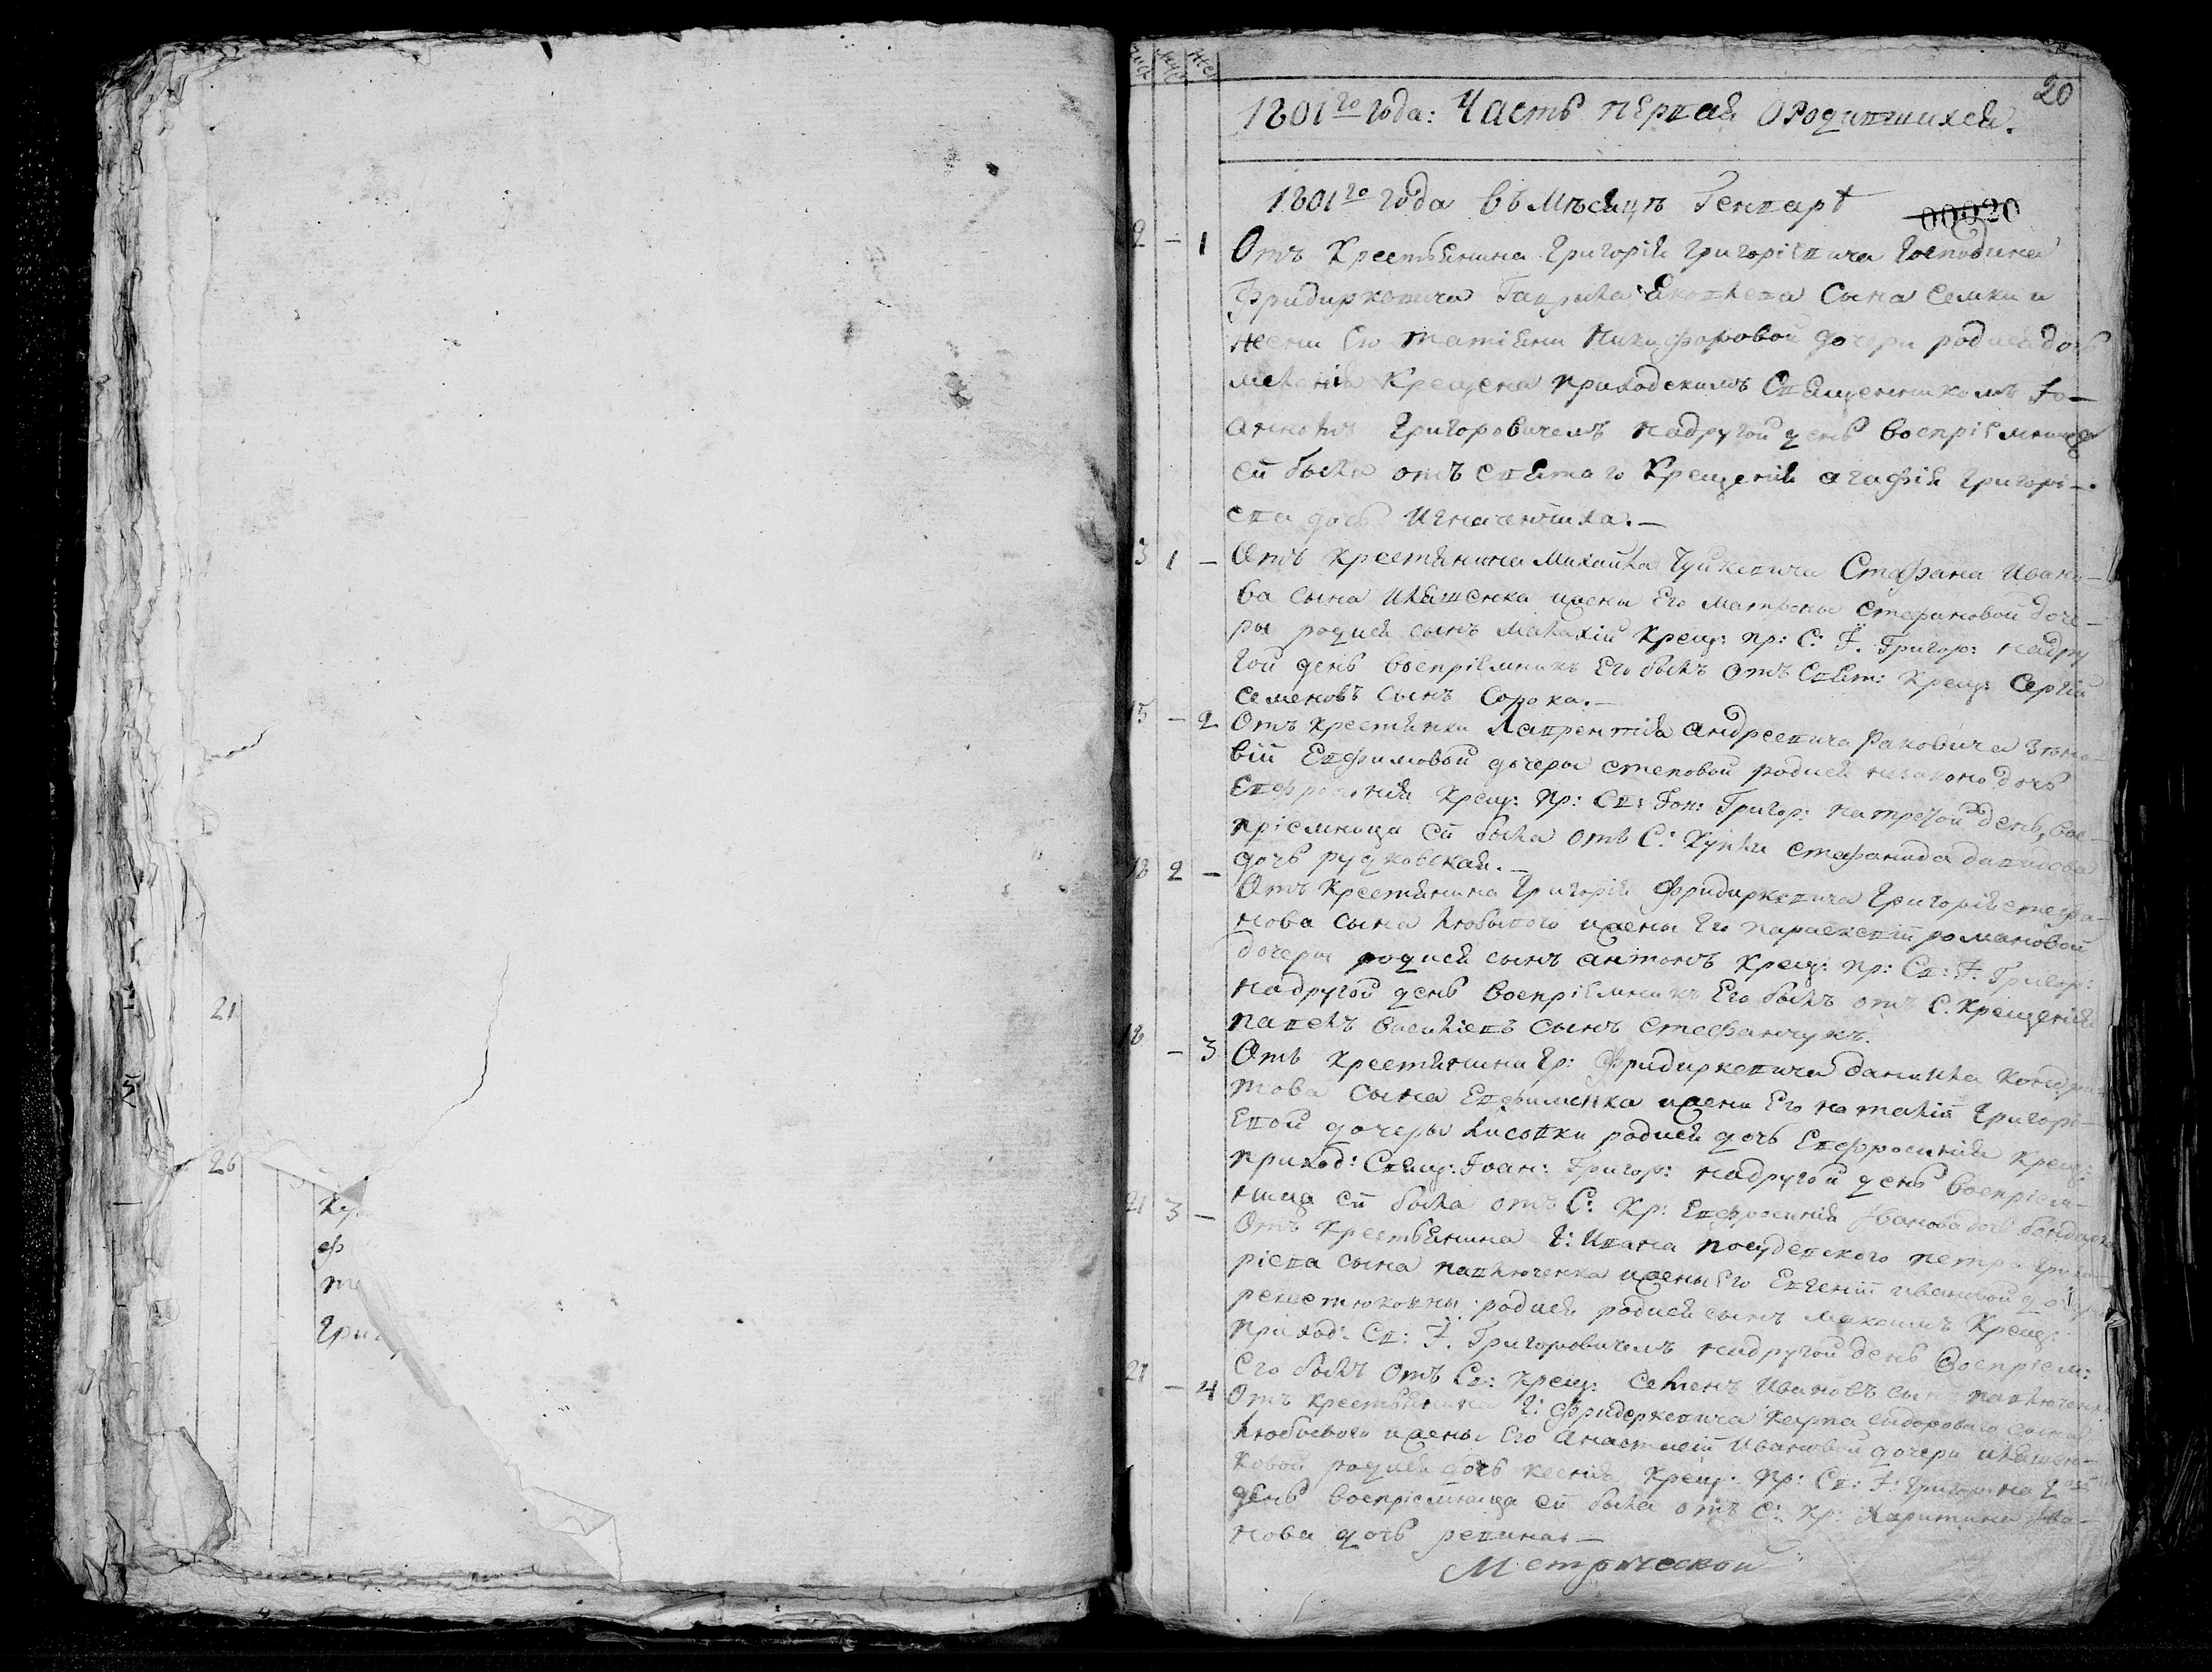 20
1801го года: Часть первая о Родившихся.
1801го года въ Мѣсяцѣ Генварѣ
00020
2 — 1 Отъ Крестьянина Григорія Григоріевича Господина
Фридиркевича Гаврила Яковлева Сына Семки и
жены Его татіяни Никифоровой дочери родися дочь
меланія Крещена приходскимъ Священникомъ Іо—
анномъ Григоровичемъ на другой день воспріемница
ей была отъ святаго Крещенія агафія Григорі—
ева дочь Игначенкиха.—
3 1 — Отъ крестянина Михайла Стефана Ивано—
ва сына Иляшенка ижены Его матроны стефановой доче—
ры родися сынъ малахій Крещ: пр: С: І. Григор: на дру
гой день воспріемникъ Его былъ отъ Свят: Крещ: Сергій
семеновъ сынъ Сорока.—
15 — 2 Отъ крестянки Лаврентія андреевича Раковича Зѣно—
вій Евфимовой дочеры степовой родися незаконо дочь
Евфросинія Крещ: Пр: Св: Іоан: Григор: на третой день, вос—
пріемница ей была отъ С: Купѣли стефанида давидова
дочь рудковская.—
18 2 — Отъ Крестянина Григорія Фридиркевича Григорія стефа—
нова сына любывого ижены Его параскевій романовой
дочеры родися сынъ антонъ Крещ: пр: Св: І. Григор:
на другой день воспріемникъ Его былъ отъ С. Крещенія
павелъ василіевъ сынъ стефанчукъ.
18 — 3 Отъ Крестянина Гр: Фридиркевича данила Кондра
това сына Евфименка ижени Его наталій Григорі—
евой дочеры лисовки родися дочь Евфросинія Крещ:
приход: Свящ: Іоан: Григор: на другой день воспріем—
ница ей была отъ С: Кр: Евфросинія Иванова дочь бондарка
21 3 — Отъ Крестьянина Г: Ивана посудевского петра Григо
ріева сына павлюченка ижены Его Евгеній ивановой дочери
решетюковны родися родися сынъ максимъ Крещ:
приход: Св: І. Григоровичемъ на другой день воспріем:
Его былъ отъ Св: Крещ: семенъ Ивановъ сынъ павлюченко
21 — 4 Отъ крестьянина Г: Фридеркевича карпа сидорового сына
любывого ижены Его анастасій Ивановой дочери иляшен—
ковой родися дочь ксенія Крещ: Пр: Св: І: Григор: на
день воспріемница ей была отъ С: Кр: харитина ива—
нова дочь репина—
Метрической
21
26
Кр
ф
те
Гри